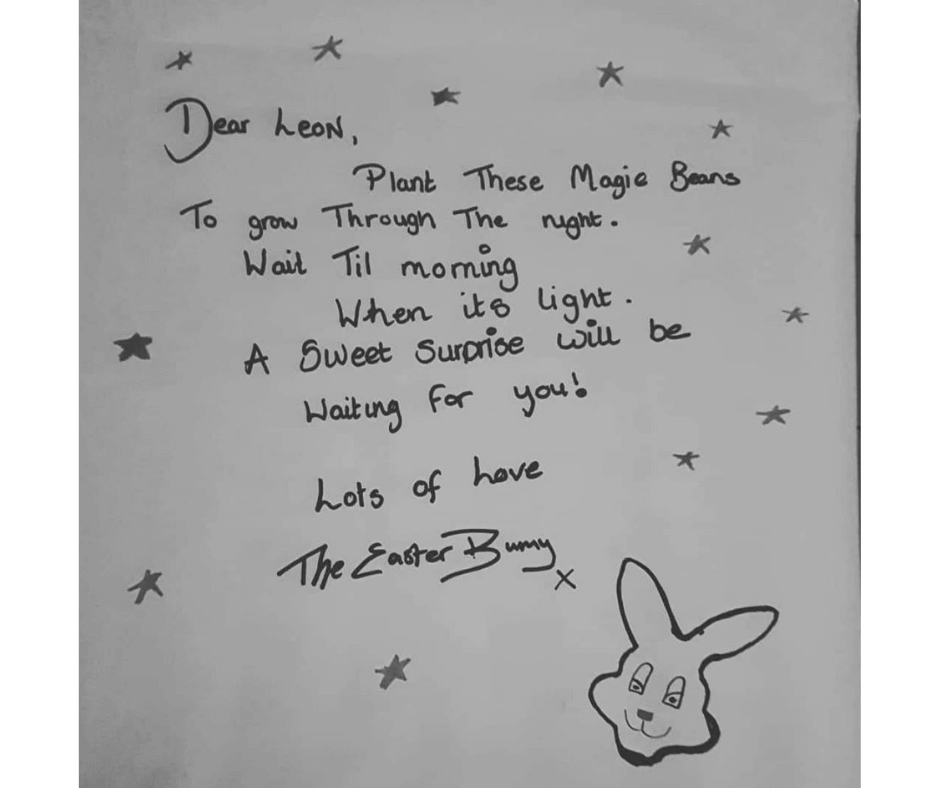 Dear Leon,
Plant These Magic Beans
To grow Through The night.
Wait Til morning
When its light.
A Sweet Surprise will be
Waiting for you!
Lots of Love
The Easter Bunny x